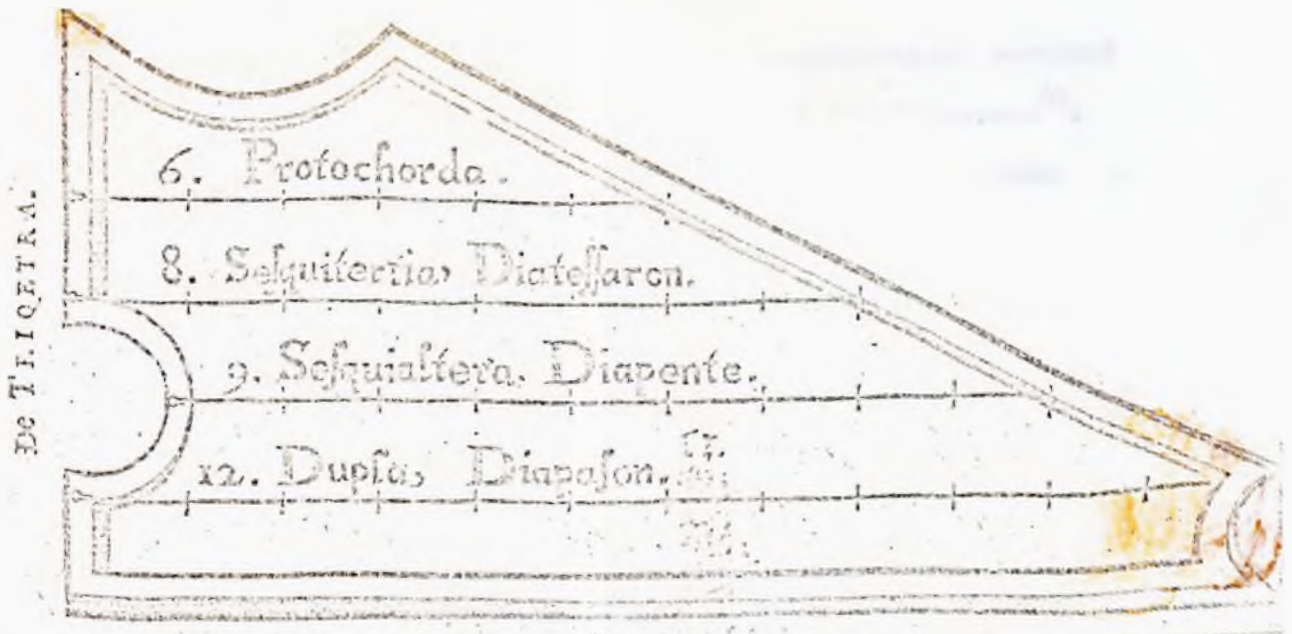 De TRIQETRA.
6. Protochorda.
8. Seſquitertia, Diateſſaron.
9. Seſquialtera. Diapente.
12. Dupla, Diapaſon.